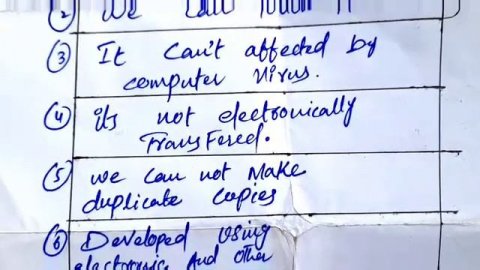 (2) We can touch it
(3) It can't affected by
computer virus.
(4) its not electronically
Transfered.
(5) we can not make
duplicate copies
(6) Developed using
electronic And other